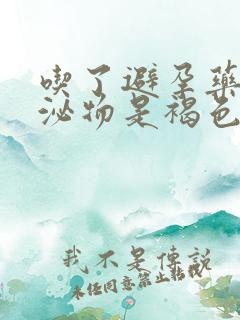 喫了避孕藥
泌物是褐色
我不是傳説
未经同意禁止转载